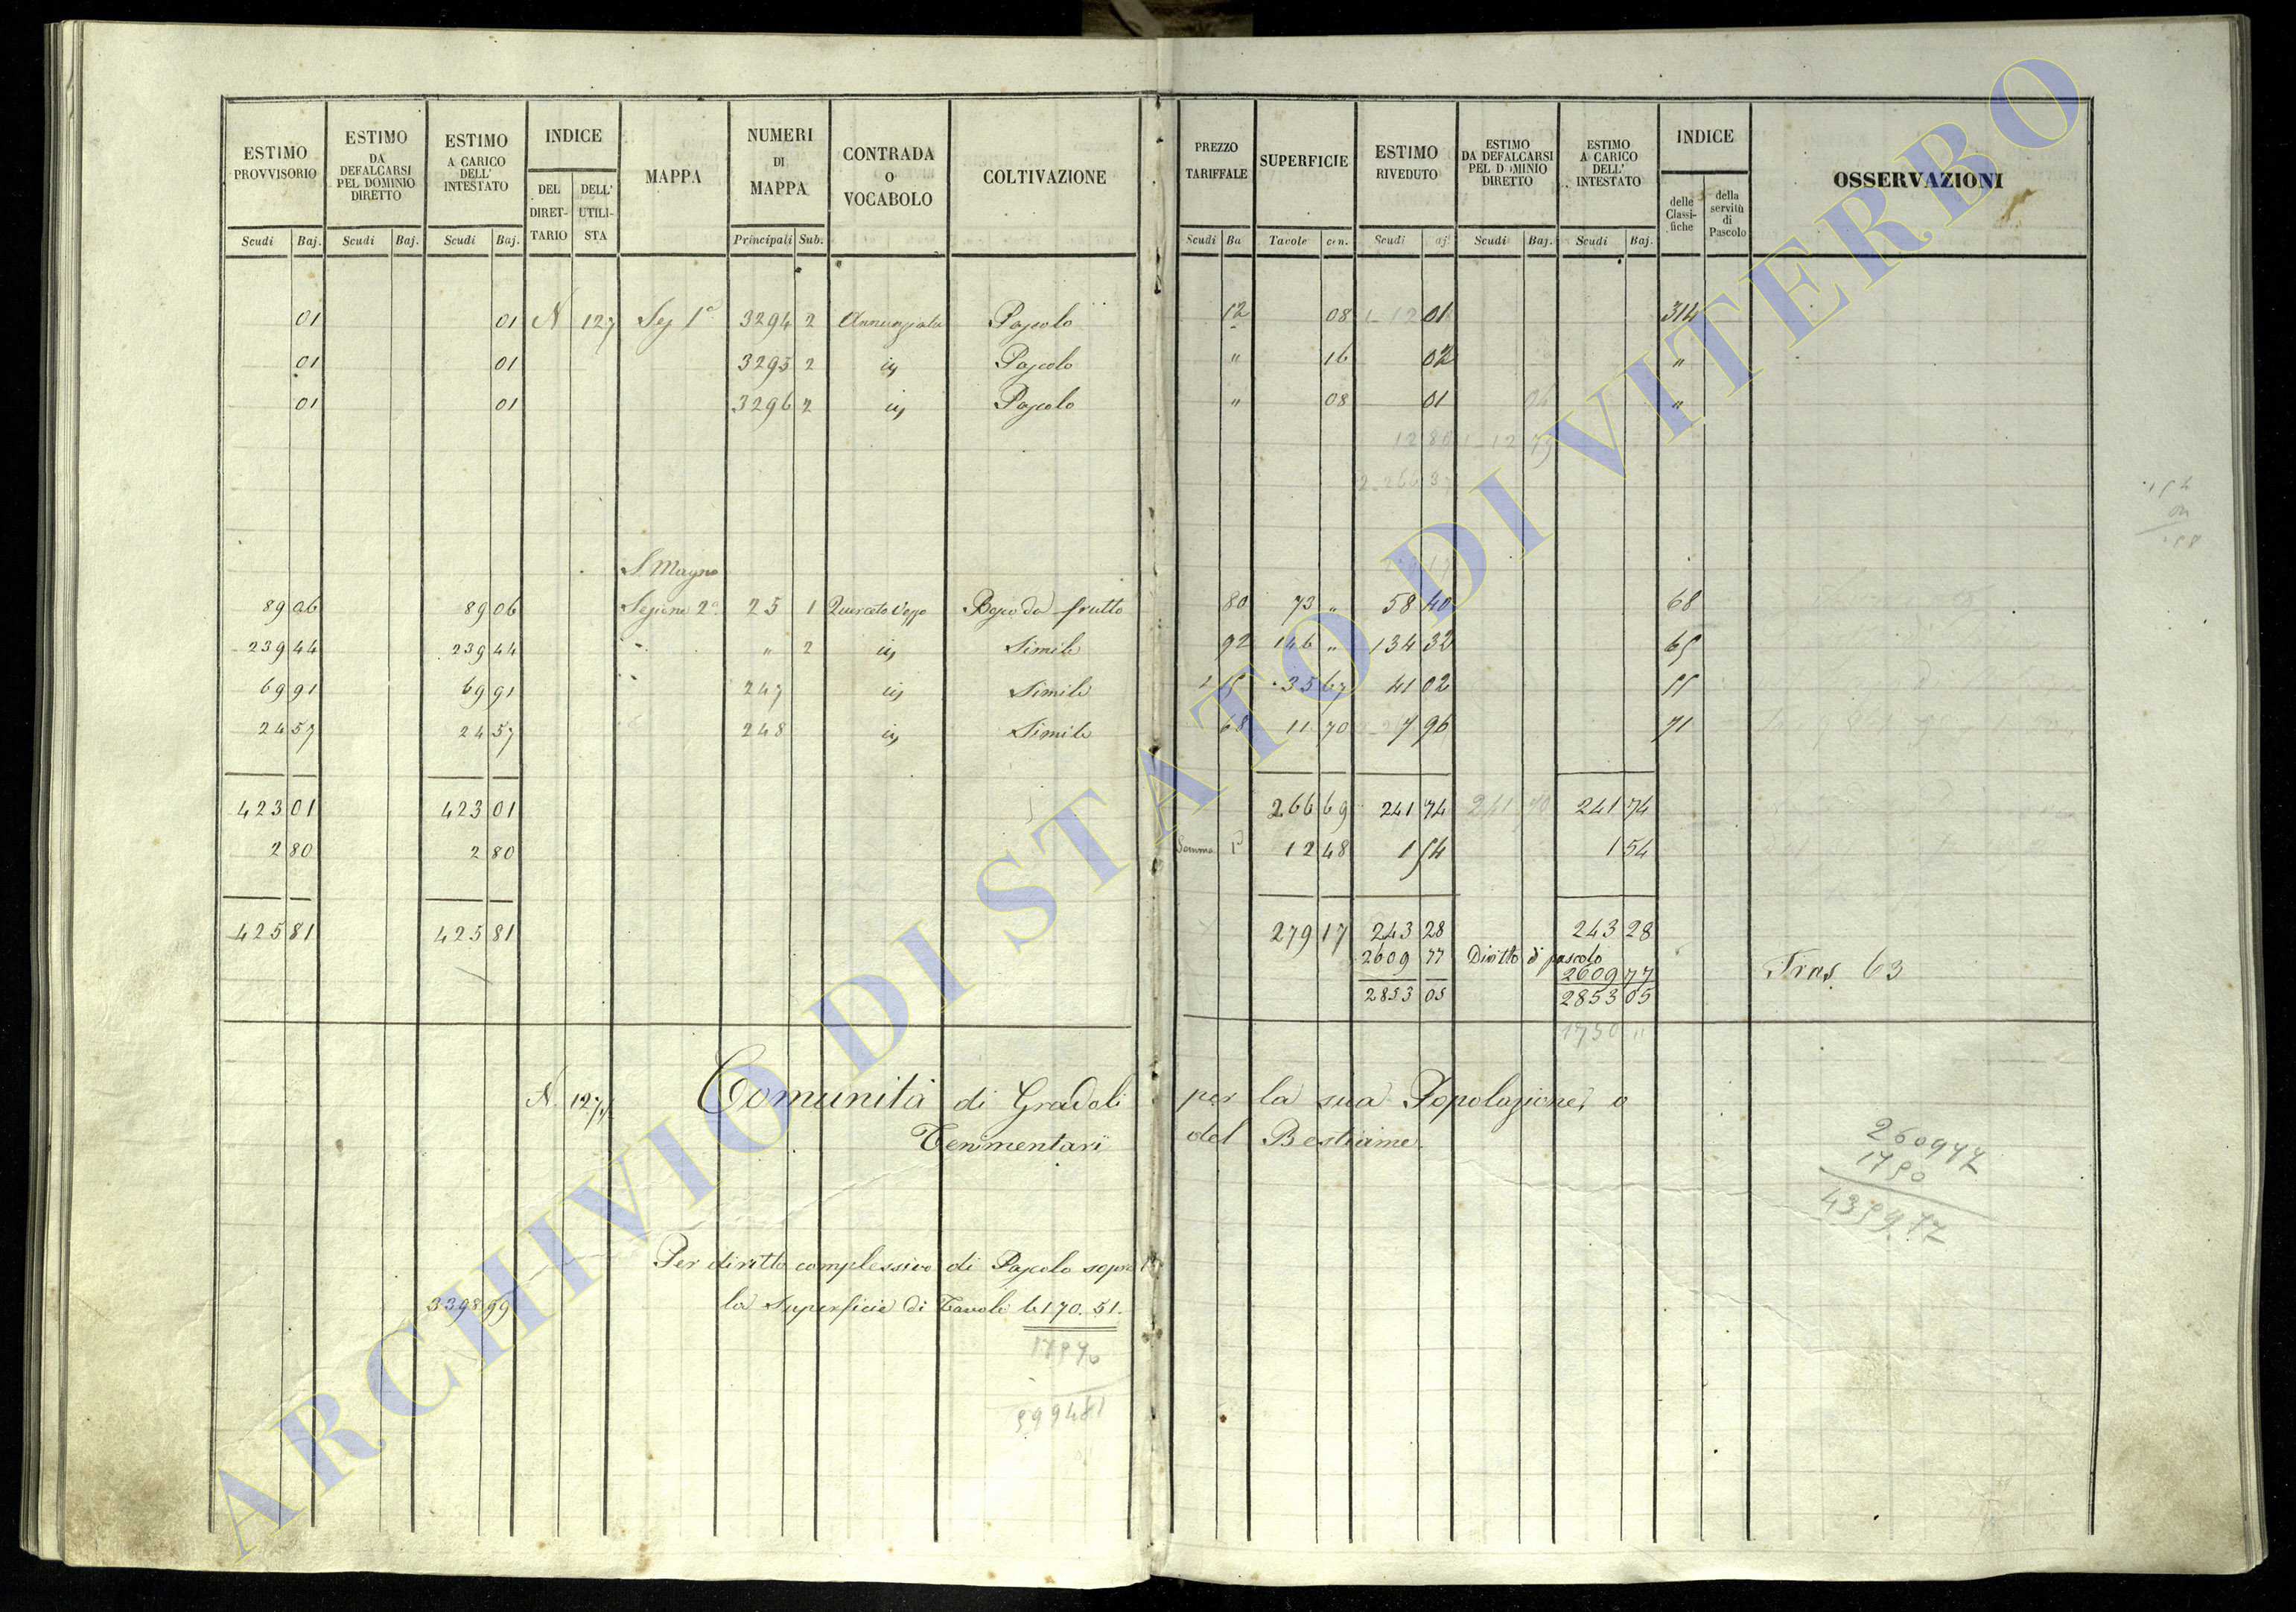 ESTIMO PROVVISORIO | ESTIMO DA DEFALCARSI PEL DOMINIO DIRETTO | ESTIMO A CARICO DELL' INTESTATO | INDICE | MAPPA | NUMERI DI MAPPA | CONTRADA O VOCABOLO | COLTIVAZIONE | PREZZO TARIFFALE | SUPERFICIE | ESTIMO RIVEDUTO | ESTIMO DA DEFALCARSI PEL DOMINIO DIRETTO | ESTIMO A CARICO DELL' INTESTATO | INDICE | OSSERVAZIONI
DEL DIRETTARIO | DELL' UTILISTA | delle Classifiche | della servitù di Pascolo
Scudi Baj. | Scudi Baj. | Scudi Baj. | Principali Sub. | Scudi Ba | Tavole cen. | Scudi aj. | Scudi Baj. | Scudi Baj.
01 | 01 | N 127 | Sez 1ª | 3294 2 | Annunziata | Pascolo | 12 | 08 | 01 | 314
01 | 01 | 3295 2 | iy | Pascolo | " | 16 | 02 | "
01 | 01 | 3296 2 | iy | Pascolo | " | 08 | 01 | "
12 80 | 12 79
S. Magno
89 06 | 89 06 | Sezione 2ª | 25 1 | Querceto Vezzo | Bosco da frutto | 80 | 73 " | 58 40 | 68
239 44 | 239 44 | " 2 | iy | Simile | 92 | 146 " | 134 32 | 65
69 91 | 69 91 | 247 | iy | Simile | 1 15 | 35 67 | 41 02 | 55
24 57 | 24 57 | 248 | iy | Simile | 68 | 11 70 | 7 96 | 71
423 01 | 423 01 | 266 69 | 241 74 | 241 70 | 241 74
2 80 | 2 80 | Somma | 12 48 | 1 54 | 1 54
425 81 | 425 81 | 279 17 | 243 28 | 243 28
2609 77 | Diritto di pascolo 2609 77 | Tras. 63
2853 05 | 2853 05
1750 "
N. 127/1 Comunità di Gradoli per la sua Popolazione, o
Tenimentari del Bestiame.
260977
1750
435977
Per diritto complessivo di Pascolo sopra
3398 99 la Superficie di Tavole 6170.51.
17570
599481
ARCHIVIO DI STATO DI VITERBO